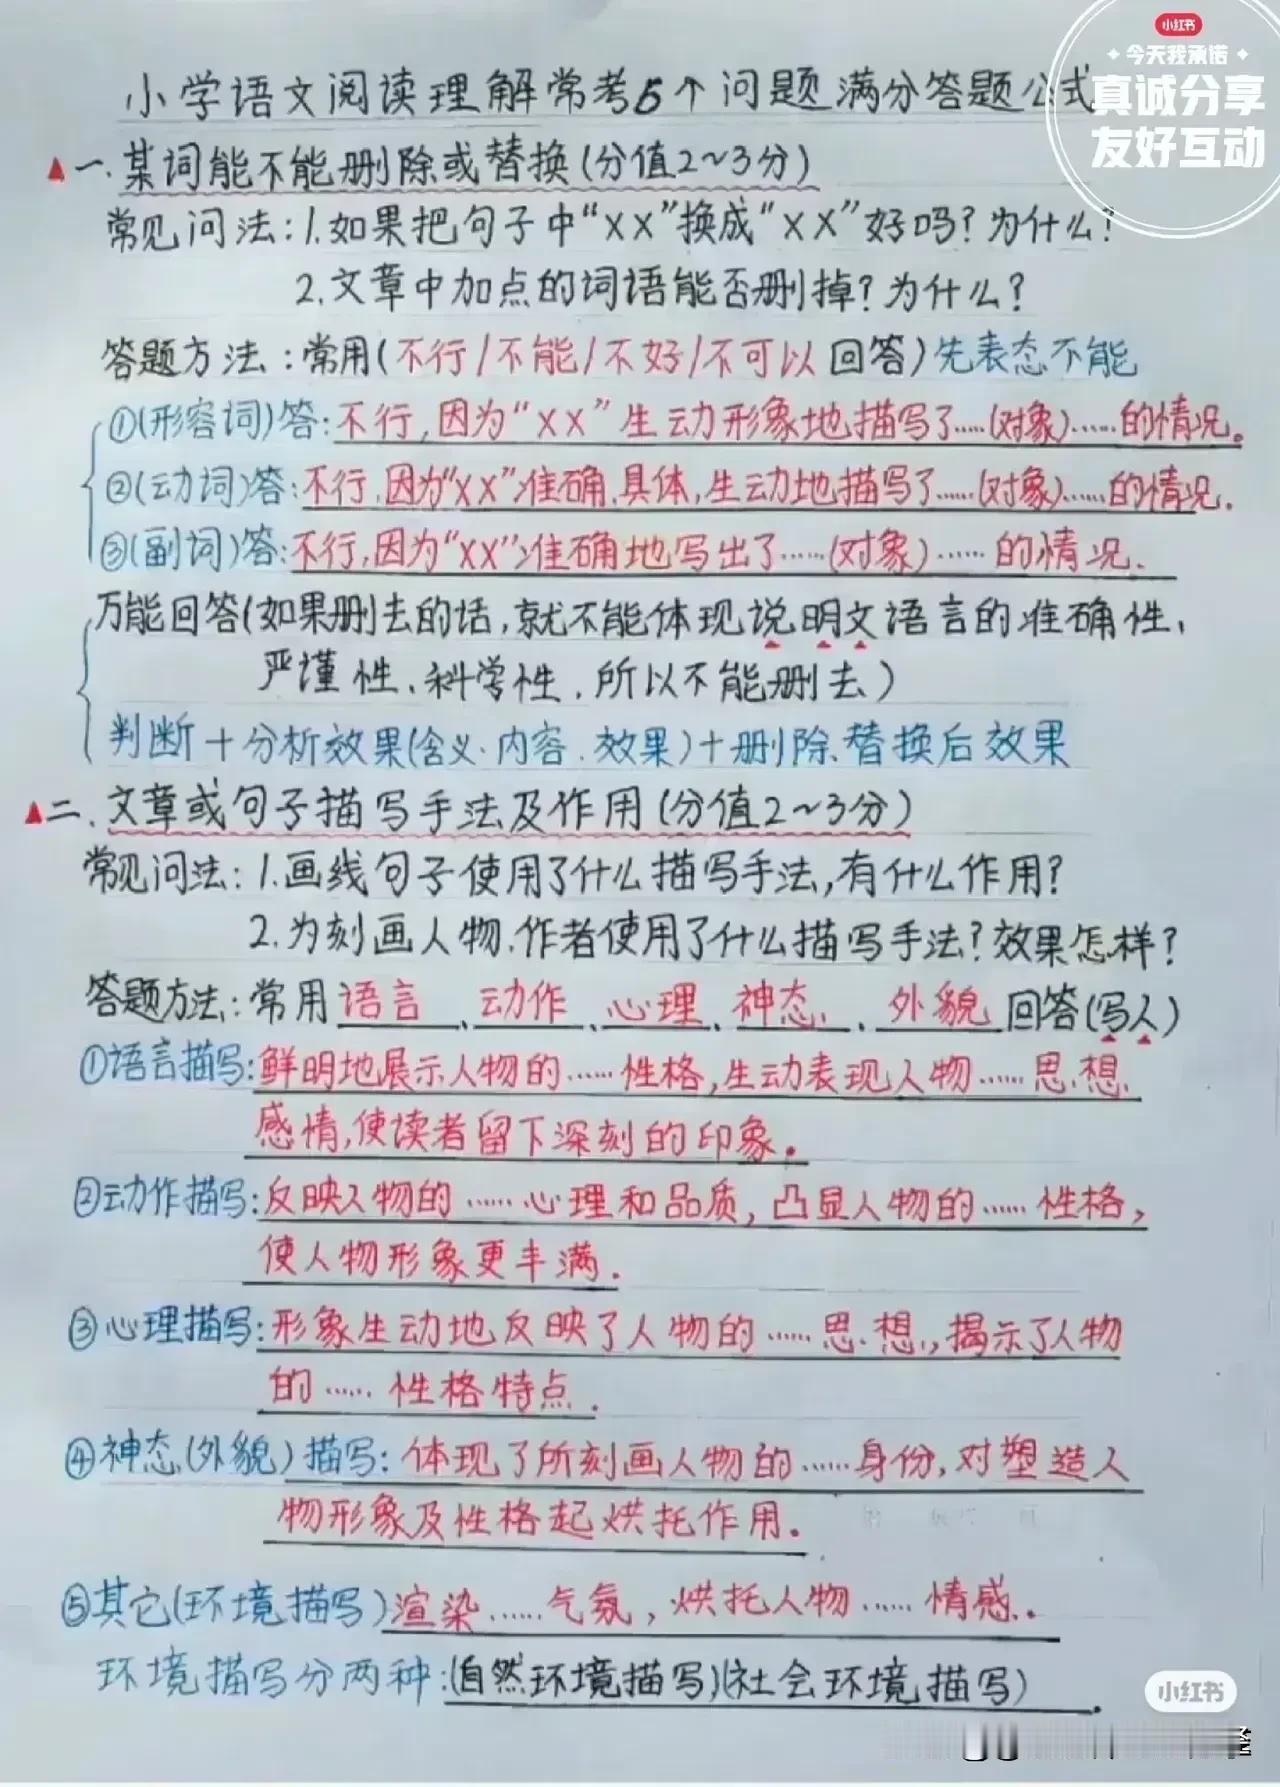 小红书
今天我承诺
真诚分享
友好互动
小学语文阅读理解常考5个问题满分答题公式
一.某词能不能删除或替换(分值2~3分)
常见问法:1.如果把句子中“XX”换成“XX”好吗?为什么?
2.文章中加点的词语能否删掉?为什么?
答题方法:常用(不行/不能/不好/不可以回答)先表态不能
①(形容词)答:不行,因为“XX”生动形象地描写了……(对象)……的情况。
②(动词)答:不行,因为“XX”准确、具体,生动地描写了……(对象)……的情况.
③(副词)答:不行,因为“XX”准确地写出了……(对象)……的情况.
万能回答(如果删去的话,就不能体现说明文语言的准确性、
严谨性、科学性,所以不能删去)
判断+分析效果(含义.内容.效果)+删除、替换后效果
二.文章或句子描写手法及作用(分值2~3分)
常见问法:1.画线句子使用了什么描写手法,有什么作用?
2.为刻画人物,作者使用了什么描写手法?效果怎样?
答题方法:常用语言、动作、心理、神态、外貌回答(写人)
①语言描写:鲜明地展示人物的……性格,生动表现人物……思想、
感情,使读者留下深刻的印象.
②动作描写:反映人物的……心理和品质,凸显人物的……性格,
使人物形象更丰满.
③心理描写:形象生动地反映了人物的……思想,揭示了人物
的……性格特点.
④神态(外貌)描写:体现了所刻画人物的……身份,对塑造人
物形象及性格起烘托作用.
⑤其它(环境描写)渲染……气氛,烘托人物……情感.
环境描写分两种:(自然环境描写)(社会环境描写).
小红书